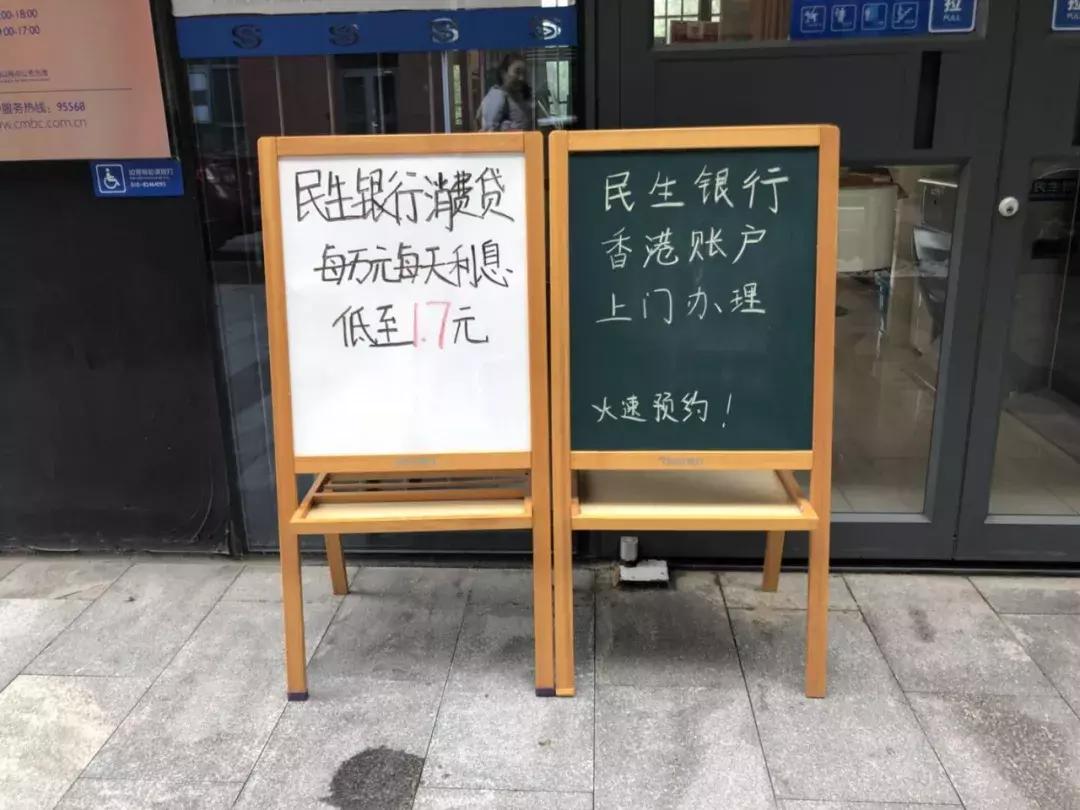 服务热线：95568
www.cmbc.com.cn
民生银行消费贷
每万元每天利息
低至1.7元
民生银行
香港账户
上门办理
火速预约！
拉
PULL
拉
PULL